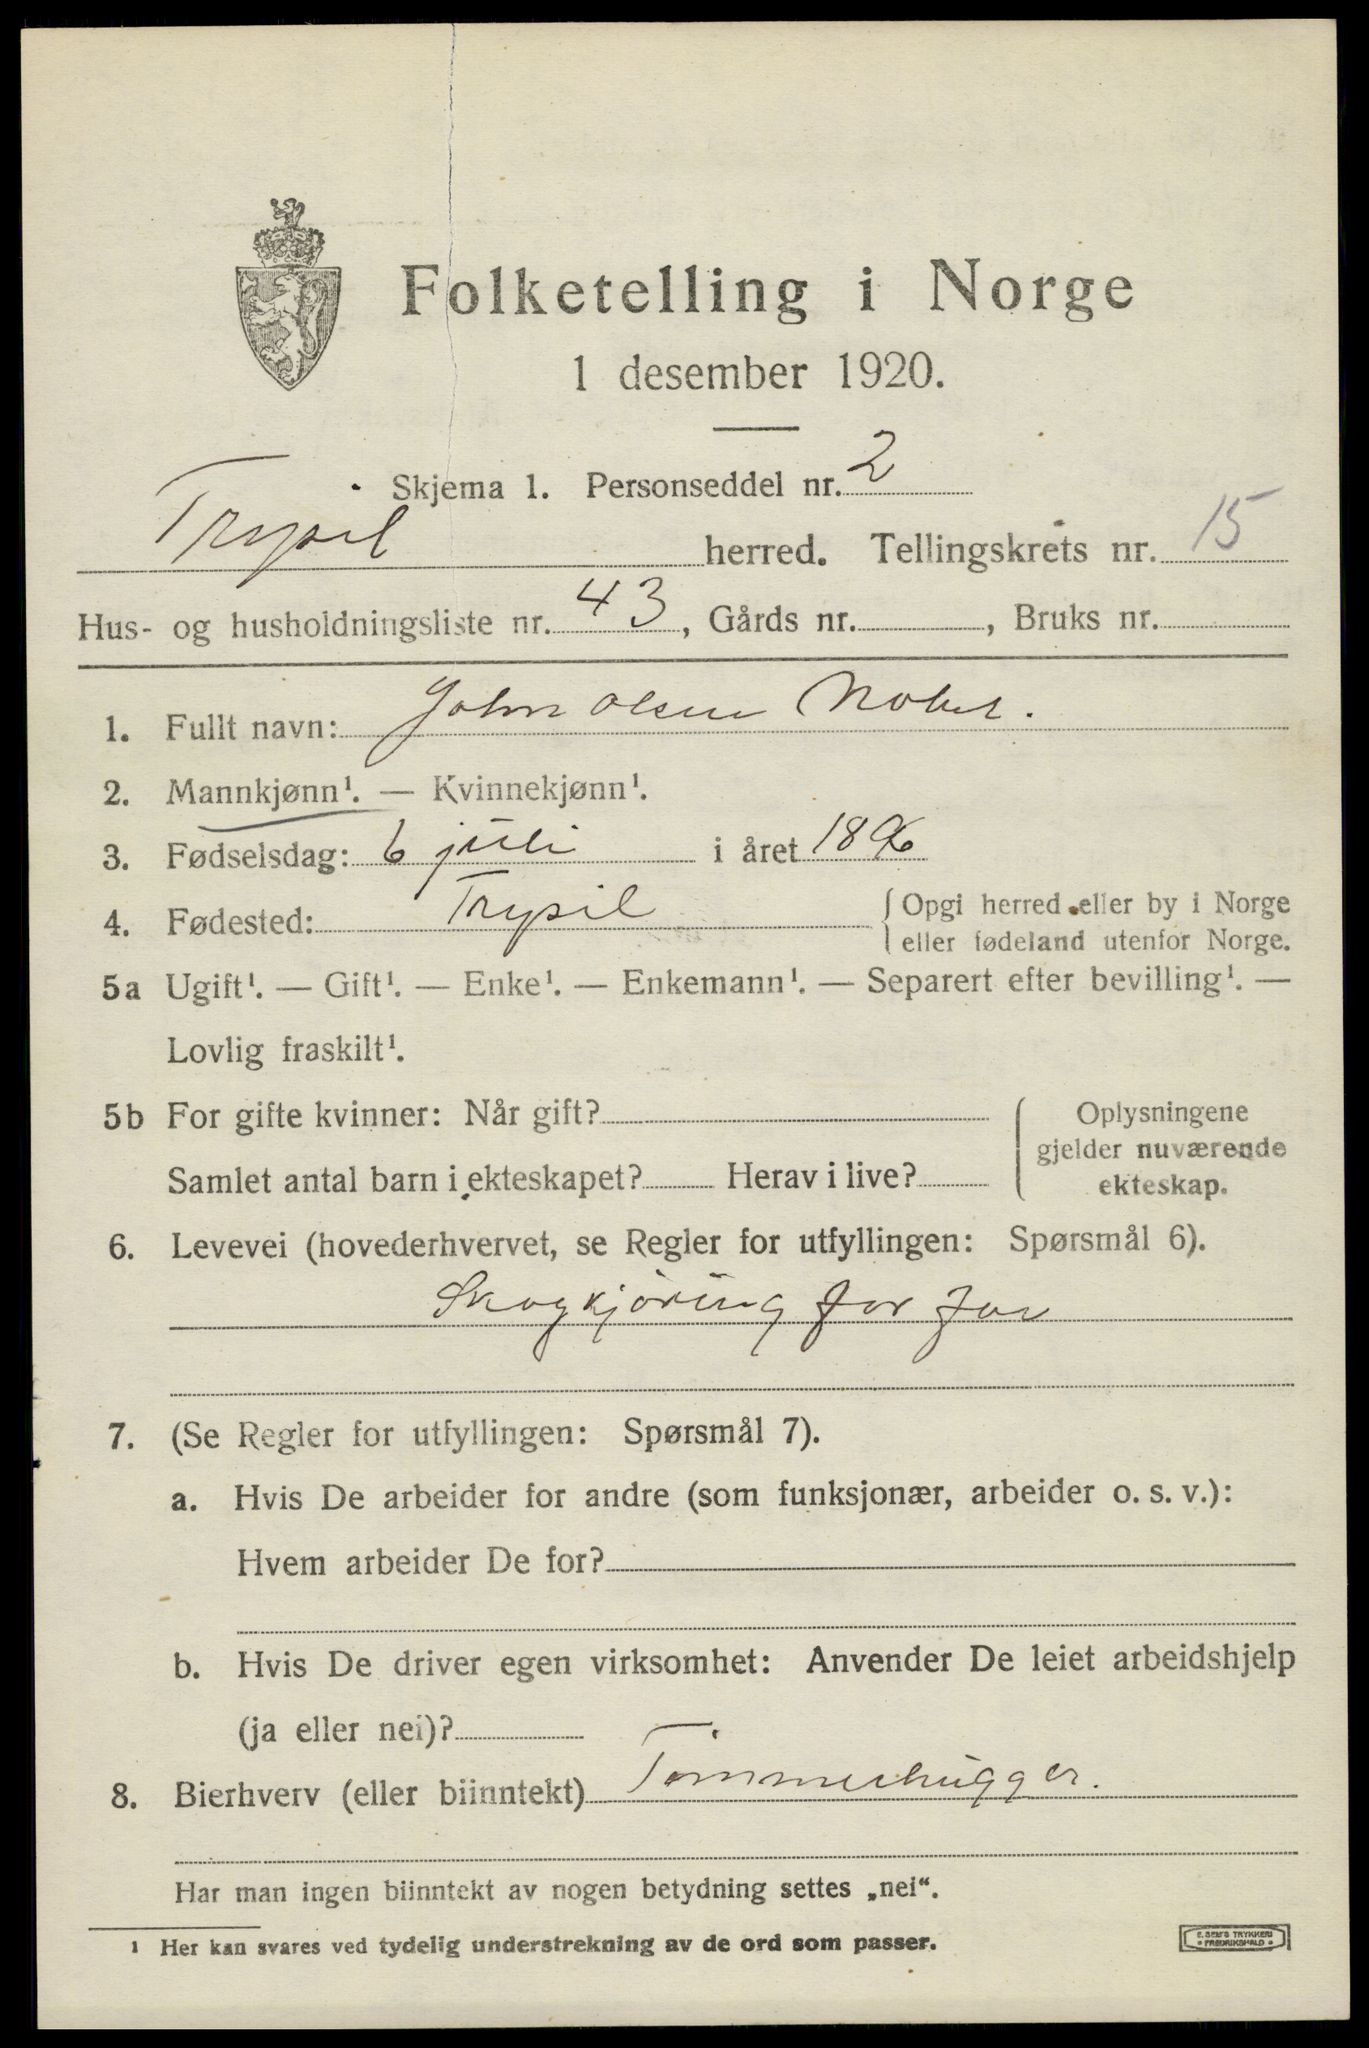 Folketelling i Norge
1 desember 1920.
Skjema 1. Personseddel nr. 2
Trysil herred. Tellingskrets nr. 15
Hus- og husholdningsliste nr. 43, Gårds nr. , Bruks nr.
1. Fullt navn: John Olsen
2. Mannkjønn¹. — Kvinnekjønn¹.
3. Fødselsdag: 6 juli i året 1896
4. Fødested: Trysil { Opgi herred eller by i Norge
eller fødeland utenfor Norge.
5a Ugift¹. — Gift¹. — Enke¹. — Enkemann¹. — Separert efter bevilling¹. —
Lovlig fraskilt¹.
5b For gifte kvinner: Når gift? { Oplysningene
gjelder nuværende
Samlet antal barn i ekteskapet? Herav i live? ekteskap.
6. Levevei (hovederhvervet, se Regler for utfyllingen: Spørsmål 6).
Skogkjöring for far
7. (Se Regler for utfyllingen: Spørsmål 7).
a. Hvis De arbeider for andre (som funksjonær, arbeider o. s. v.):
Hvem arbeider De for?
b. Hvis De driver egen virksomhet: Anvender De leiet arbeidshjelp
(ja eller nei)?
8. Bierhverv (eller biinntekt) Tömmerhugger.
Har man ingen biinntekt av nogen betydning settes „nei“.
¹ Her kan svares ved tydelig understrekning av de ord som passer.
E. SEM'S TRYKKERI
• FREDRIKSHALD •